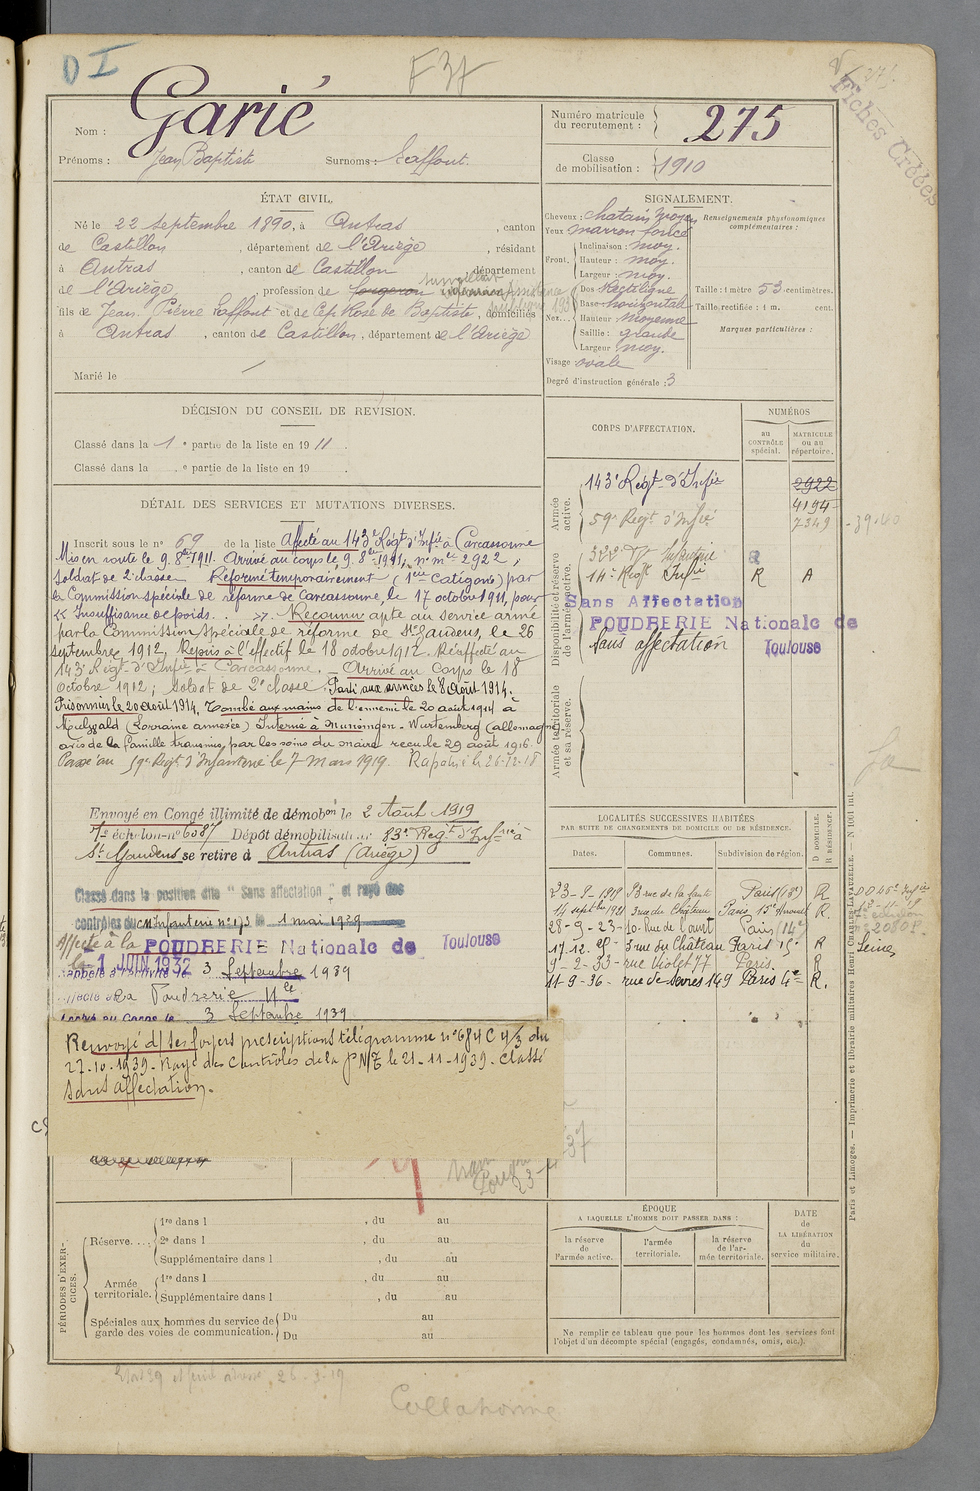 D I
F 37
275
Fiches Créées
Nom : Garié
Prénoms : Jean Baptiste Surnoms : Laffont.
Numéro matricule
du recrutement : 275
Classe
de mobilisation : 1910
ÉTAT CIVIL.
Né le 22 septembre 1890, à Antras, canton
de Castillon, département de l'Ariège, résidant
à Antras, canton de Castillon, département
de l'Ariège, profession de forgeron
fils de Jean Pierre Laffont et de Cep Rose de Baptiste, domiciliés
à Antras, canton de Castillon, département de l'Ariège
Marié le
SIGNALEMENT.
Cheveux : chatain moyen
Yeux marron foncé
Front. Inclinaison : moy.
Hauteur : moy.
Largeur : moy.
Nez... Dos Rectiligne
Base horizontale
Hauteur Moyenne
Saillie : grande
Largeur moy.
Visage ovale
Degré d'instruction générale : 3
Renseignements physionomiques
complémentaires :
Taille : 1 mètre 53 centimètres.
Taille rectifiée : 1 m. cent.
Marques particulières :
DÉCISION DU CONSEIL DE RÉVISION.
Classé dans la 1 e partie de la liste en 1911.
Classé dans la e partie de la liste en 19
DÉTAIL DES SERVICES ET MUTATIONS DIVERSES.
Inscrit sous le no 69 de la liste Affecté au 143e Régt d'Infie à Carcassonne
Mis en route le 9. 8bre 1911. Arrivé au corps le 9. 8bre 1911, no mle 2922,
soldat de 2e classe. Réformé temporairement (1ère Catégorie) par
la Commission spéciale de réforme de Carcassonne, le 17 octobre 1911, pour
« Insuffisance de poids. . . ». Reconnu apte au service armé
par la Commission spéciale de réforme de St Gaudens, le 26
septembre 1912, Repris à l'effectif le 18 octobre 1912. Réaffecté au
143e Régt d'Infie à Carcassonne. Arrivé au Corps le 18
octobre 1912, soldat de 2e classe. Parti aux armées le 8 août 1914.
Prisonnier le 20 août 1914, Tombé aux mains de l'ennemi le 20 août 1914 à
(Lorraine annexée) Interné à Munsingen - Wurtemberg (allemagne)
avis de la famille transmis, par les soins du maire reçu le 29 août 1916.
Passé au 59e Régt d'Infanterie le 7 mars 1919. Rapatrié le 26-12-18
Envoyé en Congé illimité de démobon le 2 Août 1919
7e échelon no 6087 Dépôt démobilisateur 83e Régt d'Infrie à
St Gaudens se retire à Antras (Ariège)
Classé dans la position dite "Sans affectation" et rayé des
contrôles du CM Infanterie no 173 le 1 mai 1929
Affecté à la POUDRERIE Nationale de Toulouse
le 1 JUIN 1932
3 Septembre 1939
Poudrerie Nle
3 Septembre 1939
Renvoyé d/ ses foyers prescriptions télégramme no 684 C 4/3 du
27.10.1939 - Rayé des Contrôles de la P N/T le 21-11-1939 - Classé
sans affectation.
CORPS D'AFFECTATION.
NUMÉROS
au
CONTRÔLE
spécial.
MATRICULE
ou au
répertoire.
Armée
active.
143e Régt d'Infie 2922
4194
59e Régt d'Infie 7349
Disponibilité et réserve
de l'armée active.
14e Régt Infie R A
Sans Affectation
POUDRERIE Nationale de
Toulouse
Sans affectation
Armée territoriale
et sa réserve.
LOCALITÉS SUCCESSIVES HABITÉES
PAR SUITE DE CHANGEMENTS DE DOMICILE OU DE RÉSIDENCE.
D DOMICILE.
R RÉSIDENCE.
Dates. Communes. Subdivision de région.
23-9-1919 rue de la Paris (18e) R
14 septbre 1921 rue du Château Paris 15e Arrondt R.
28-9-23 10 Rue de l'ouest Paris (14e)
17-12 25 3 rue du Château Paris 15e R
9-2-33 rue Violet 77 Paris. R
11-9-36 - rue de Sèvres 149 Paris R.
Seine
PÉRIODES D'EXERCICES.
Réserve.... 1re dans l , du au
2e dans l , du au
Supplémentaire dans l , du au
Armée
territoriale. 1re dans l , du au
Supplémentaire dans l , du au
Spéciales aux hommes du service de
garde des voies de communication. Du au
Du au
ÉPOQUE
A LAQUELLE L'HOMME DOIT PASSER DANS :
la réserve
de
l'armée active.
l'armée
territoriale.
la réserve
de l'ar-
mée territoriale.
DATE
de
LA LIBÉRATION
du
service militaire.
Ne remplir ce tableau que pour les hommes dont les services font
l'objet d'un décompte spécial (engagés, condamnés, omis, etc.).
Paris et Limoges. — Imprimerie et librairie militaires Henri CHARLES-LAVAUZELLE. — N 1001 int.